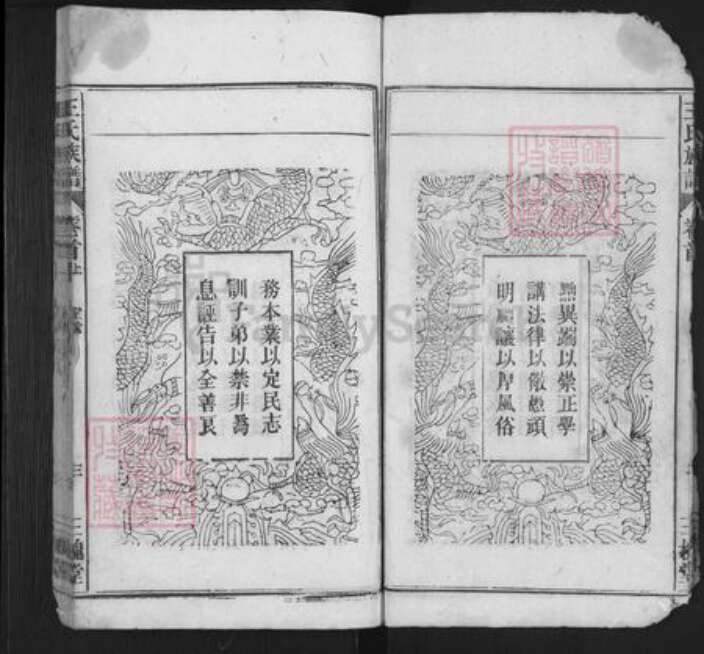 黜異端以崇正學
講法律以儆愚頑
明禮讓以厚風俗
務本業以定民志
訓子弟以禁非為
息誣告以全善良
王氏族譜
卷首
王氏族譜
卷首上
三槐堂
三槐堂
FamilySearch